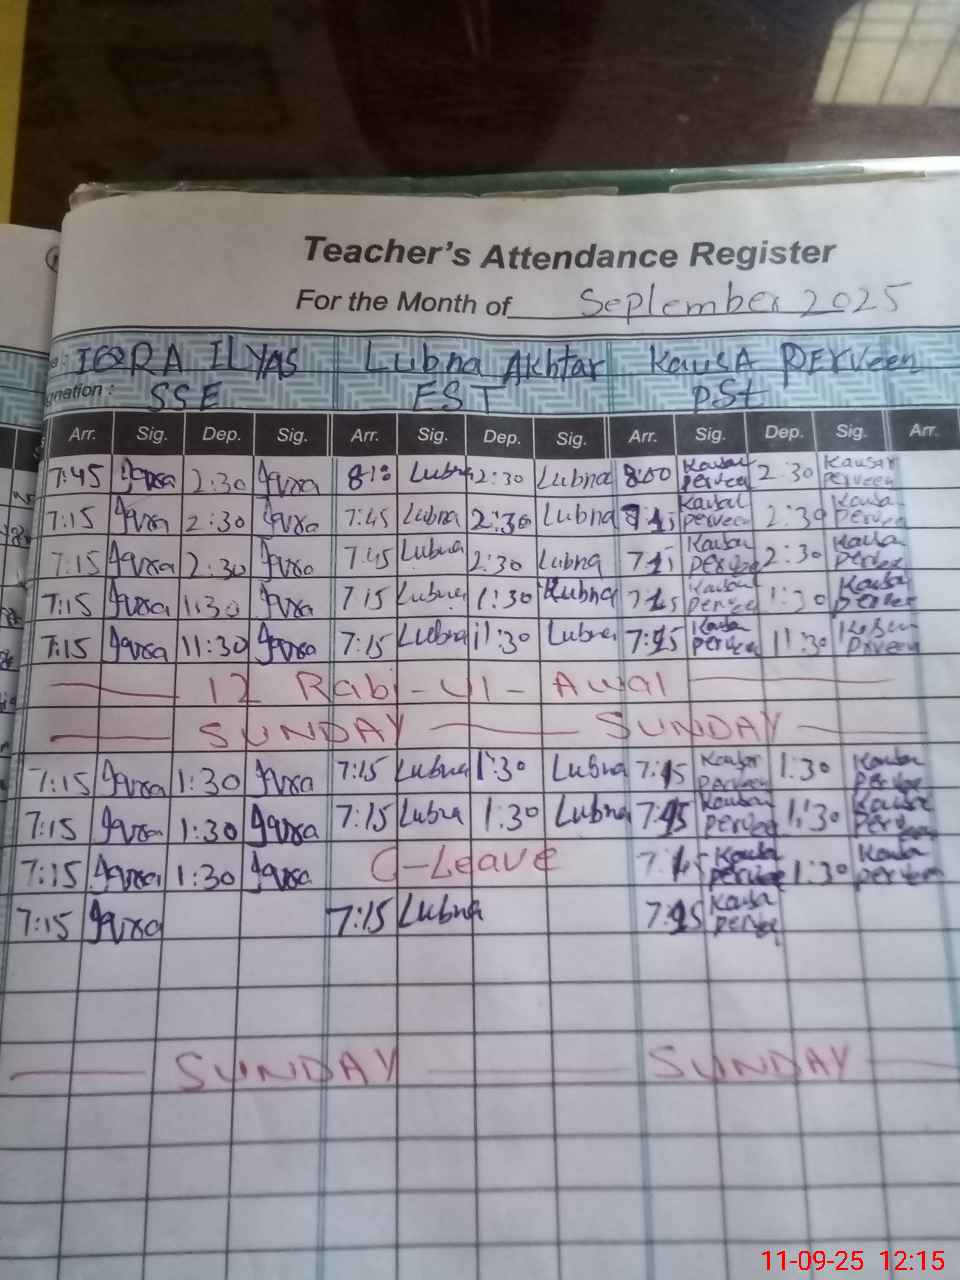 Teacher's Attendance Register
For the Month of September 2025
IQRA ILYAS Lubna Akhtar KausA PERVeen
gnation : SSE EST PSt
Arr. Sig. Dep. Sig. Arr. Sig. Dep. Sig. Arr. Sig. Dep. Sig. Arr.
7:45 Iqra 2:30 Iqra Lubna 2:30 Lubna 8:00 Kausar perveen 2:30 Kausar perveen
7:15 Iqra 2:30 Iqra 7:45 Lubna 2:30 Lubna Kausar perveen 2:30 Kausar perveen
7:15 Iqra 2:30 Iqra 7:45 Lubna 2:30 Lubna Kausar 2:30 Kausar
7:15 Iqra 1:30 Iqra 7:15 Lubna 1:30 Lubna Kausar 1:30 Kausar
7:15 Iqra 11:30 Iqra 7:15 Lubna 11:30 Lubna 11:30
12 Rabi-ul-Awal
SUNDAY SUNDAY
7:15 Iqra 1:30 Iqra 7:15 Lubna 1:30 Lubna Kausar perveen 1:30 Kausar
7:15 Iqra 1:30 Iqra 7:15 Lubna 1:30 Lubna Kausar 1:30 Kausar
7:15 Iqra 1:30 Iqra C-Leave 1:30
7:15 Iqra 7:15 Lubna
SUNDAY SUNDAY
11-09-25 12:15